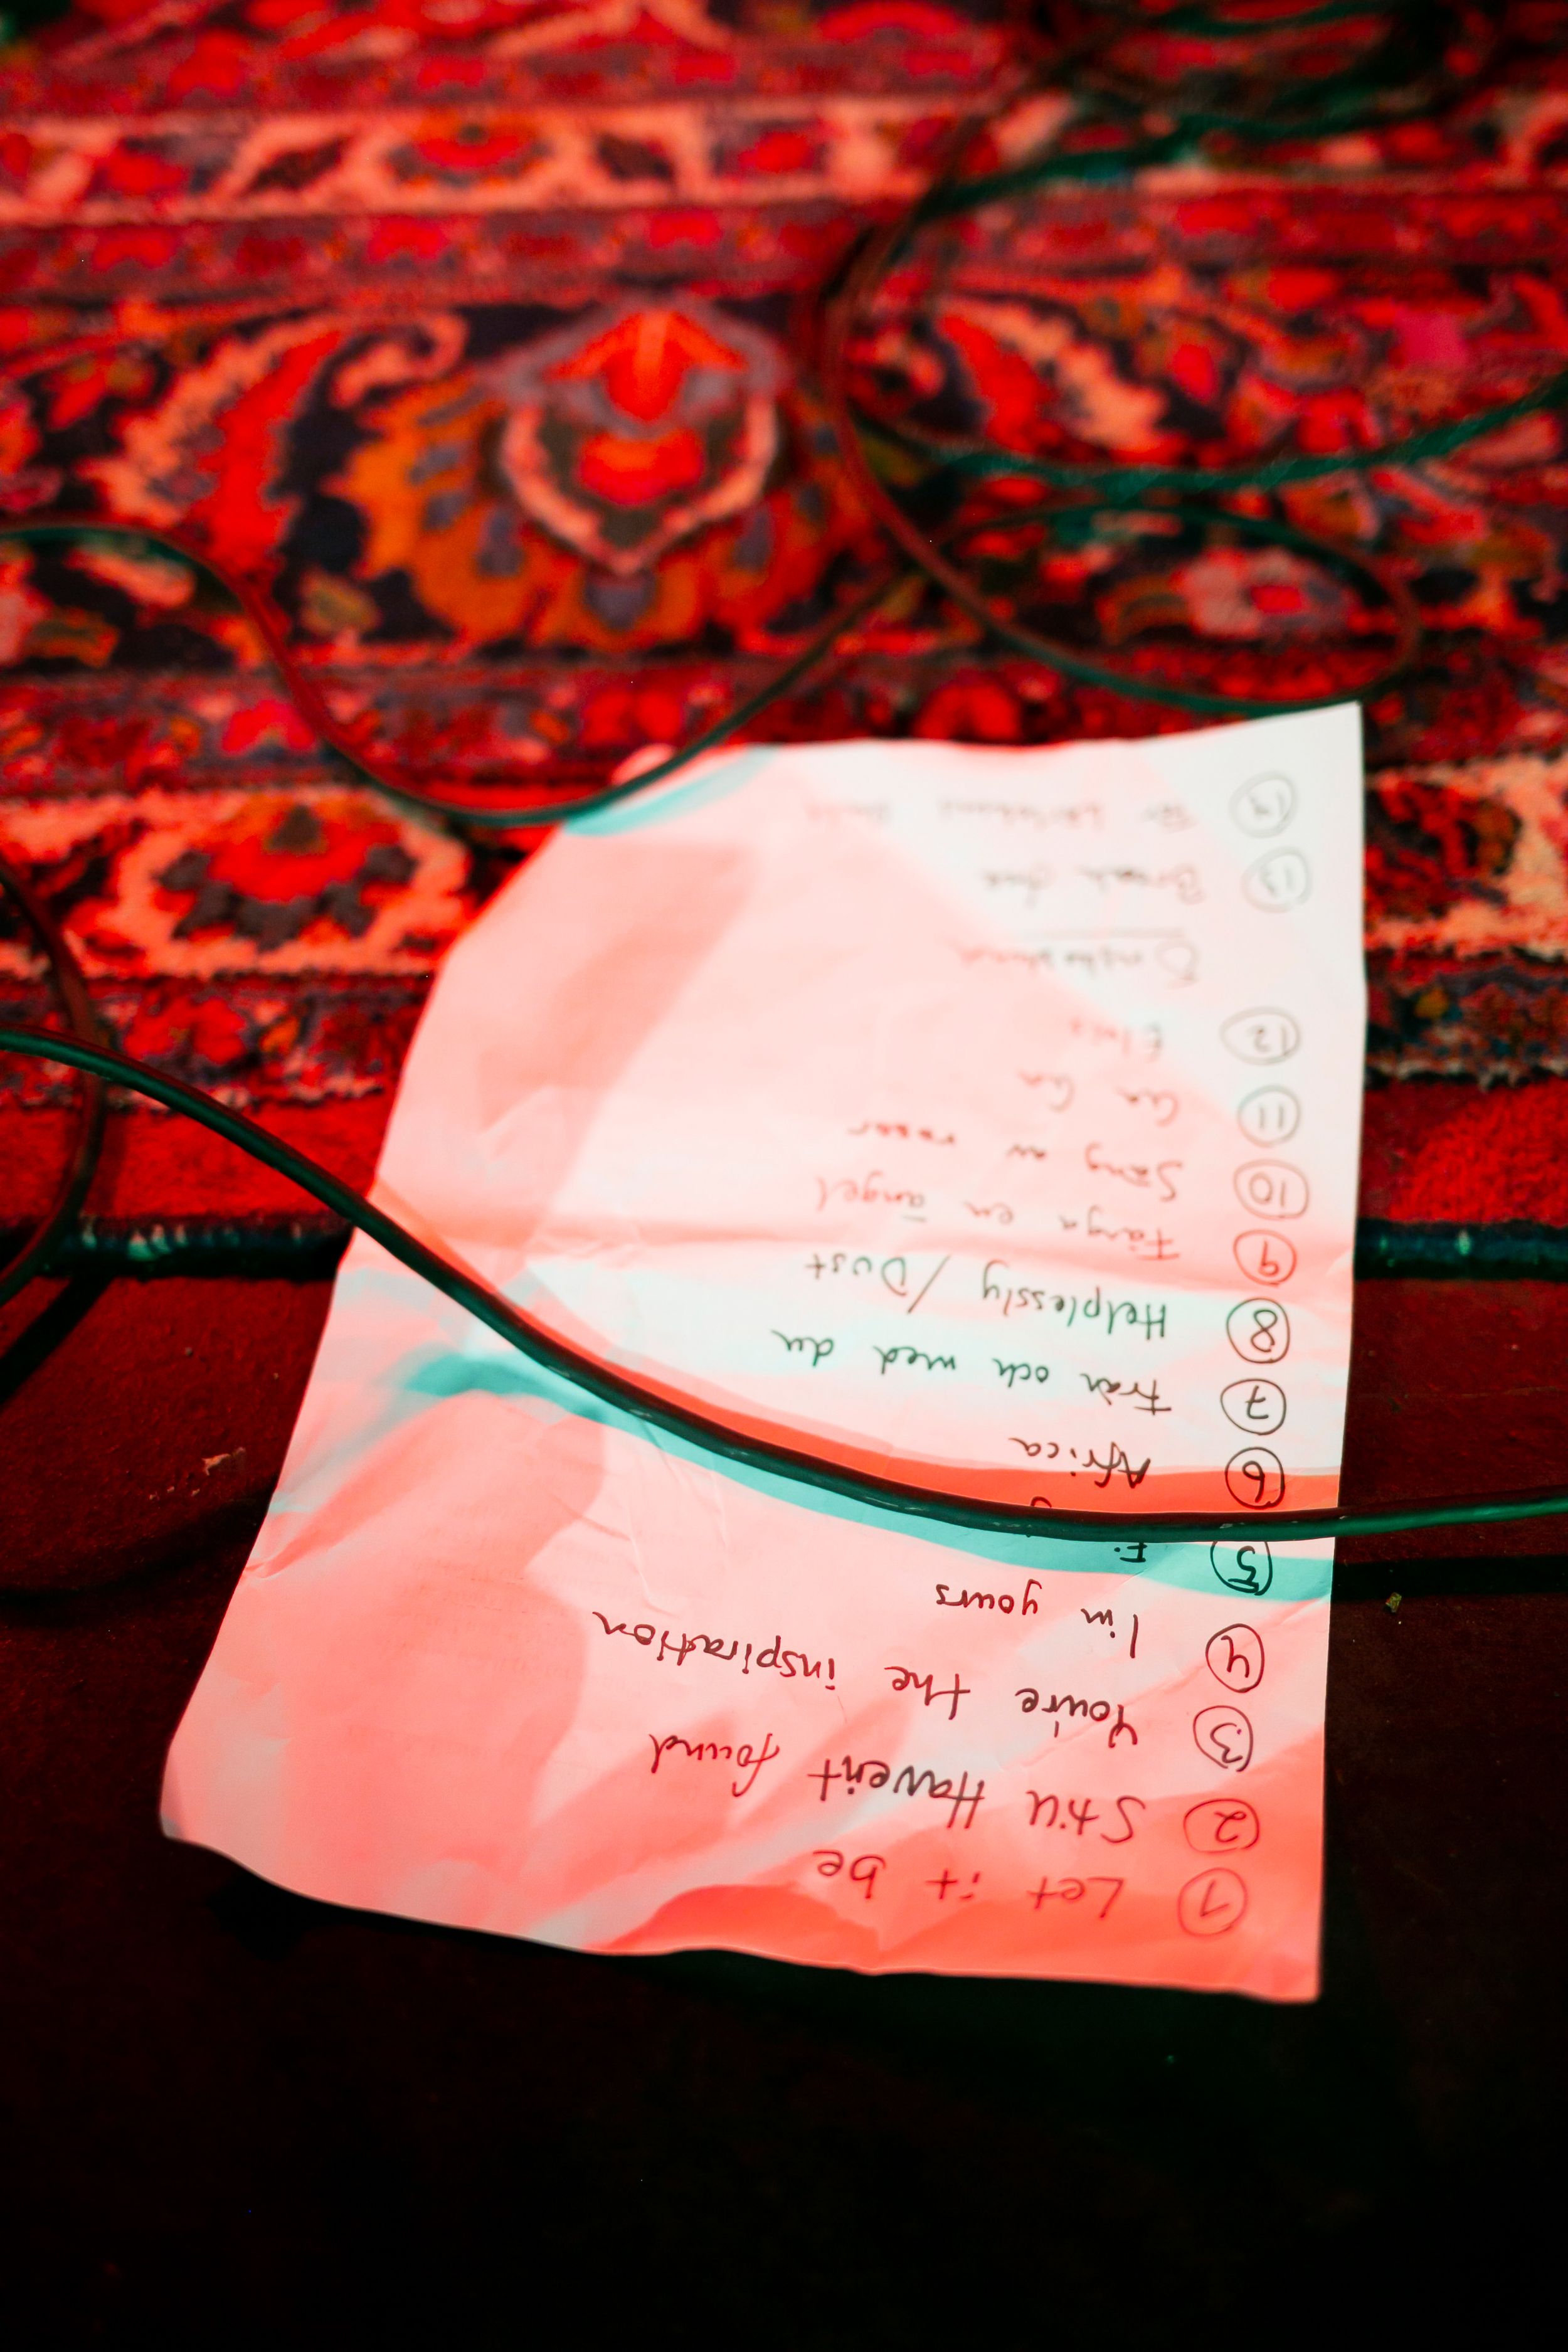 1 Let it be
2 Still Haven't found
3 You're the inspiration
4 I'm yours
5
6 Africa
7 Här och med du
8 Helplessly / Dust
9 Fånga en ängel
10 Säng av rosor
11 La La
12 Elvis
13 Break free
14